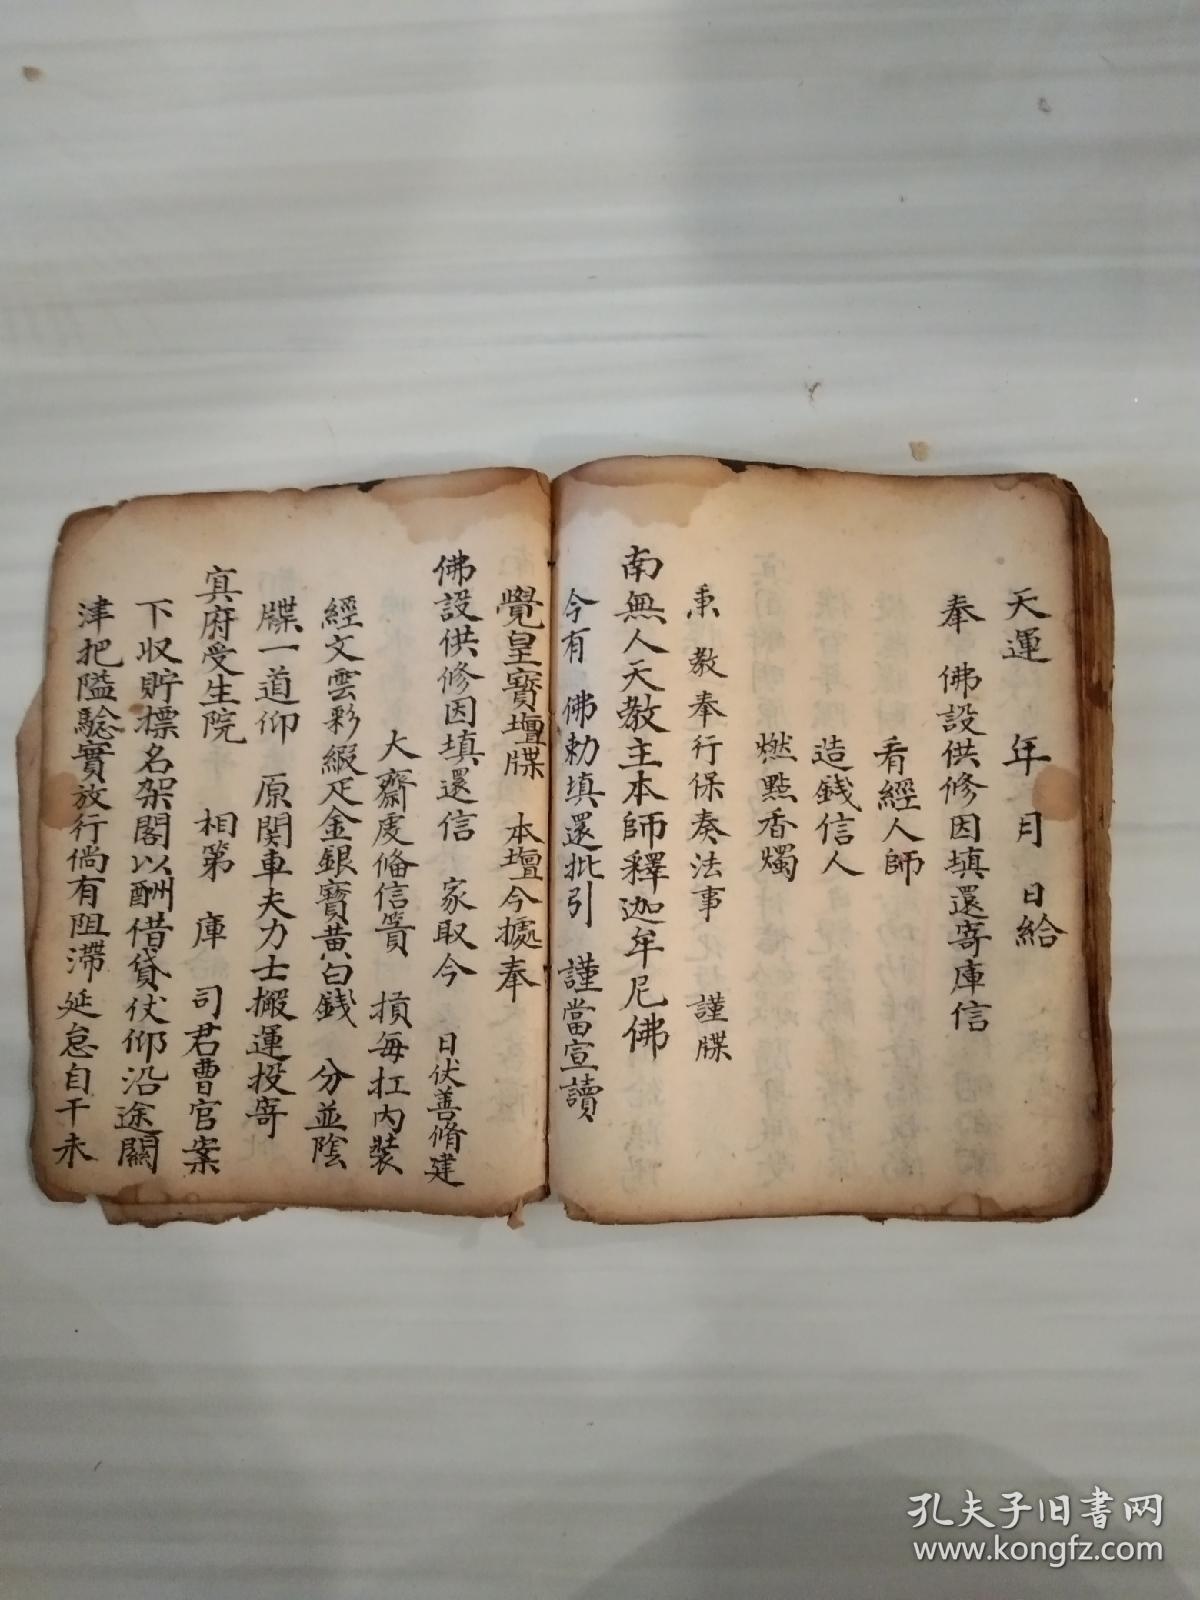 天運 年 月 日給
奉 佛設供修因填還寄庫信
看經人師
造錢信人
燃點香燭
秉教奉行保奏法事 謹牒
南無人天教主本師釋迦牟尼佛
今有 佛勅填還批引 謹當宣讀
覺皇寶壇牒 本壇今據奉
佛設供修因填還信 家取今 日伏善脩建
大齋虔俻信篢 損每扛内裝
經文雲彩緞疋金銀寶黄白銭 分並陰
牒一道仰 原関車夫力士搬運投寄
冥府受生院 相第 庫 司君曹官案
下収貯標名架閣以酬借貸伏仰沿途關
津把隘騐實放行倘有阻滯延怠自干未
孔夫子旧书网
www.kongfz.com